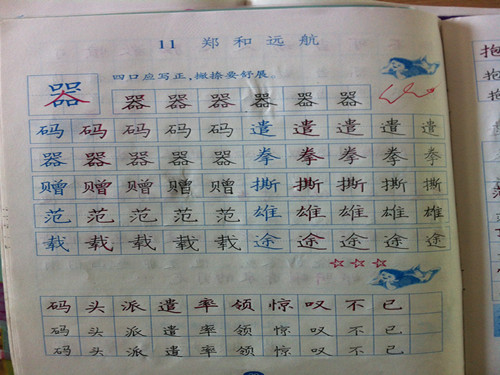 11 郑和远航
四口应写正，撇捺要舒展。
器 器 器 器 器 器 器
码 码 码 码 码 遣 遣 遣 遣 遣
器 器 器 器 器 拳 拳 拳 拳 拳
赠 赠 赠 赠 赠 撕 撕 撕 撕 撕
范 范 范 范 范 雄 雄 雄 雄 雄
载 载 载 载 载 途 途 途 途 途
码 头 派 遣 率 领 惊 叹 不 已
码 头 派 遣 率 领 惊 叹 不 已
码 头 派 遣 率 领 惊 叹 不 已
抱
抱
抱